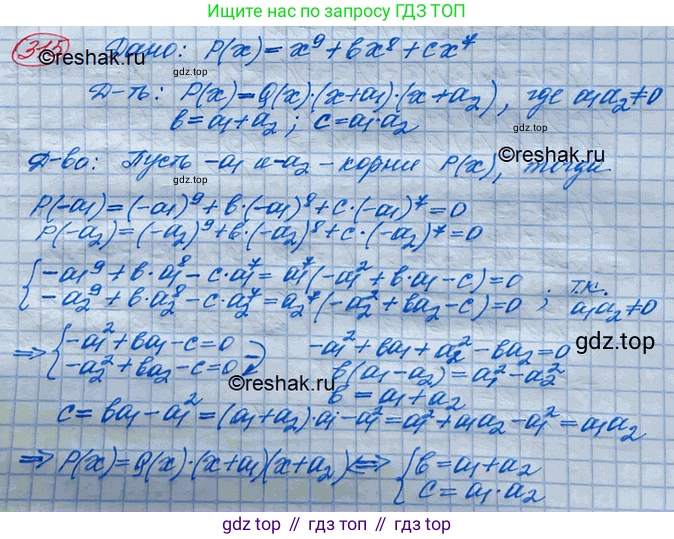 Ищите нас по запросу ГДЗ ТОП
315 Дано: P(x)=x⁹+bx⁸+cx⁷
©reshak.ru
gdz.top
Д-ть: P(x)=Q(x)·(x+a₁)·(x+a₂), где a₁a₂≠0
b=a₁+a₂; c=a₁·a₂
gdz.top
Д-во: Пусть -a₁ и -a₂ - корни P(x), тогда
©reshak.ru
gdz.top
P(-a₁)=(-a₁)⁹+b·(-a₁)⁸+c·(-a₁)⁷=0
P(-a₂)=(-a₂)⁹+b·(-a₂)⁸+c·(-a₂)⁷=0
{-a₁⁹+b·a₁⁸-c·a₁⁷=a₁⁷(-a₁²+b·a₁-c)=0
-a₂⁹+b·a₂⁸-c·a₂⁷=a₂⁷(-a₂²+ba₂-c)=0 ; т.к. a₁a₂≠0
gdz.top
⇒ {-a₁²+ba₁-c=0
-a₂²+ba₂-c=0
-a₁²+ba₁+a₂²-ba₂=0
b(a₁-a₂)=a₁²-a₂²
b=a₁+a₂
©reshak.ru
c=ba₁-a₁²=(a₁+a₂)·a₁-a₁²=a₁²+a₁a₂-a₁²=a₁a₂
⇒ P(x)=Q(x)·(x+a₁)(x+a₂) ⇔ {b=a₁+a₂
c=a₁·a₂
gdz.top
gdz.top // гдз.топ // gdz.top